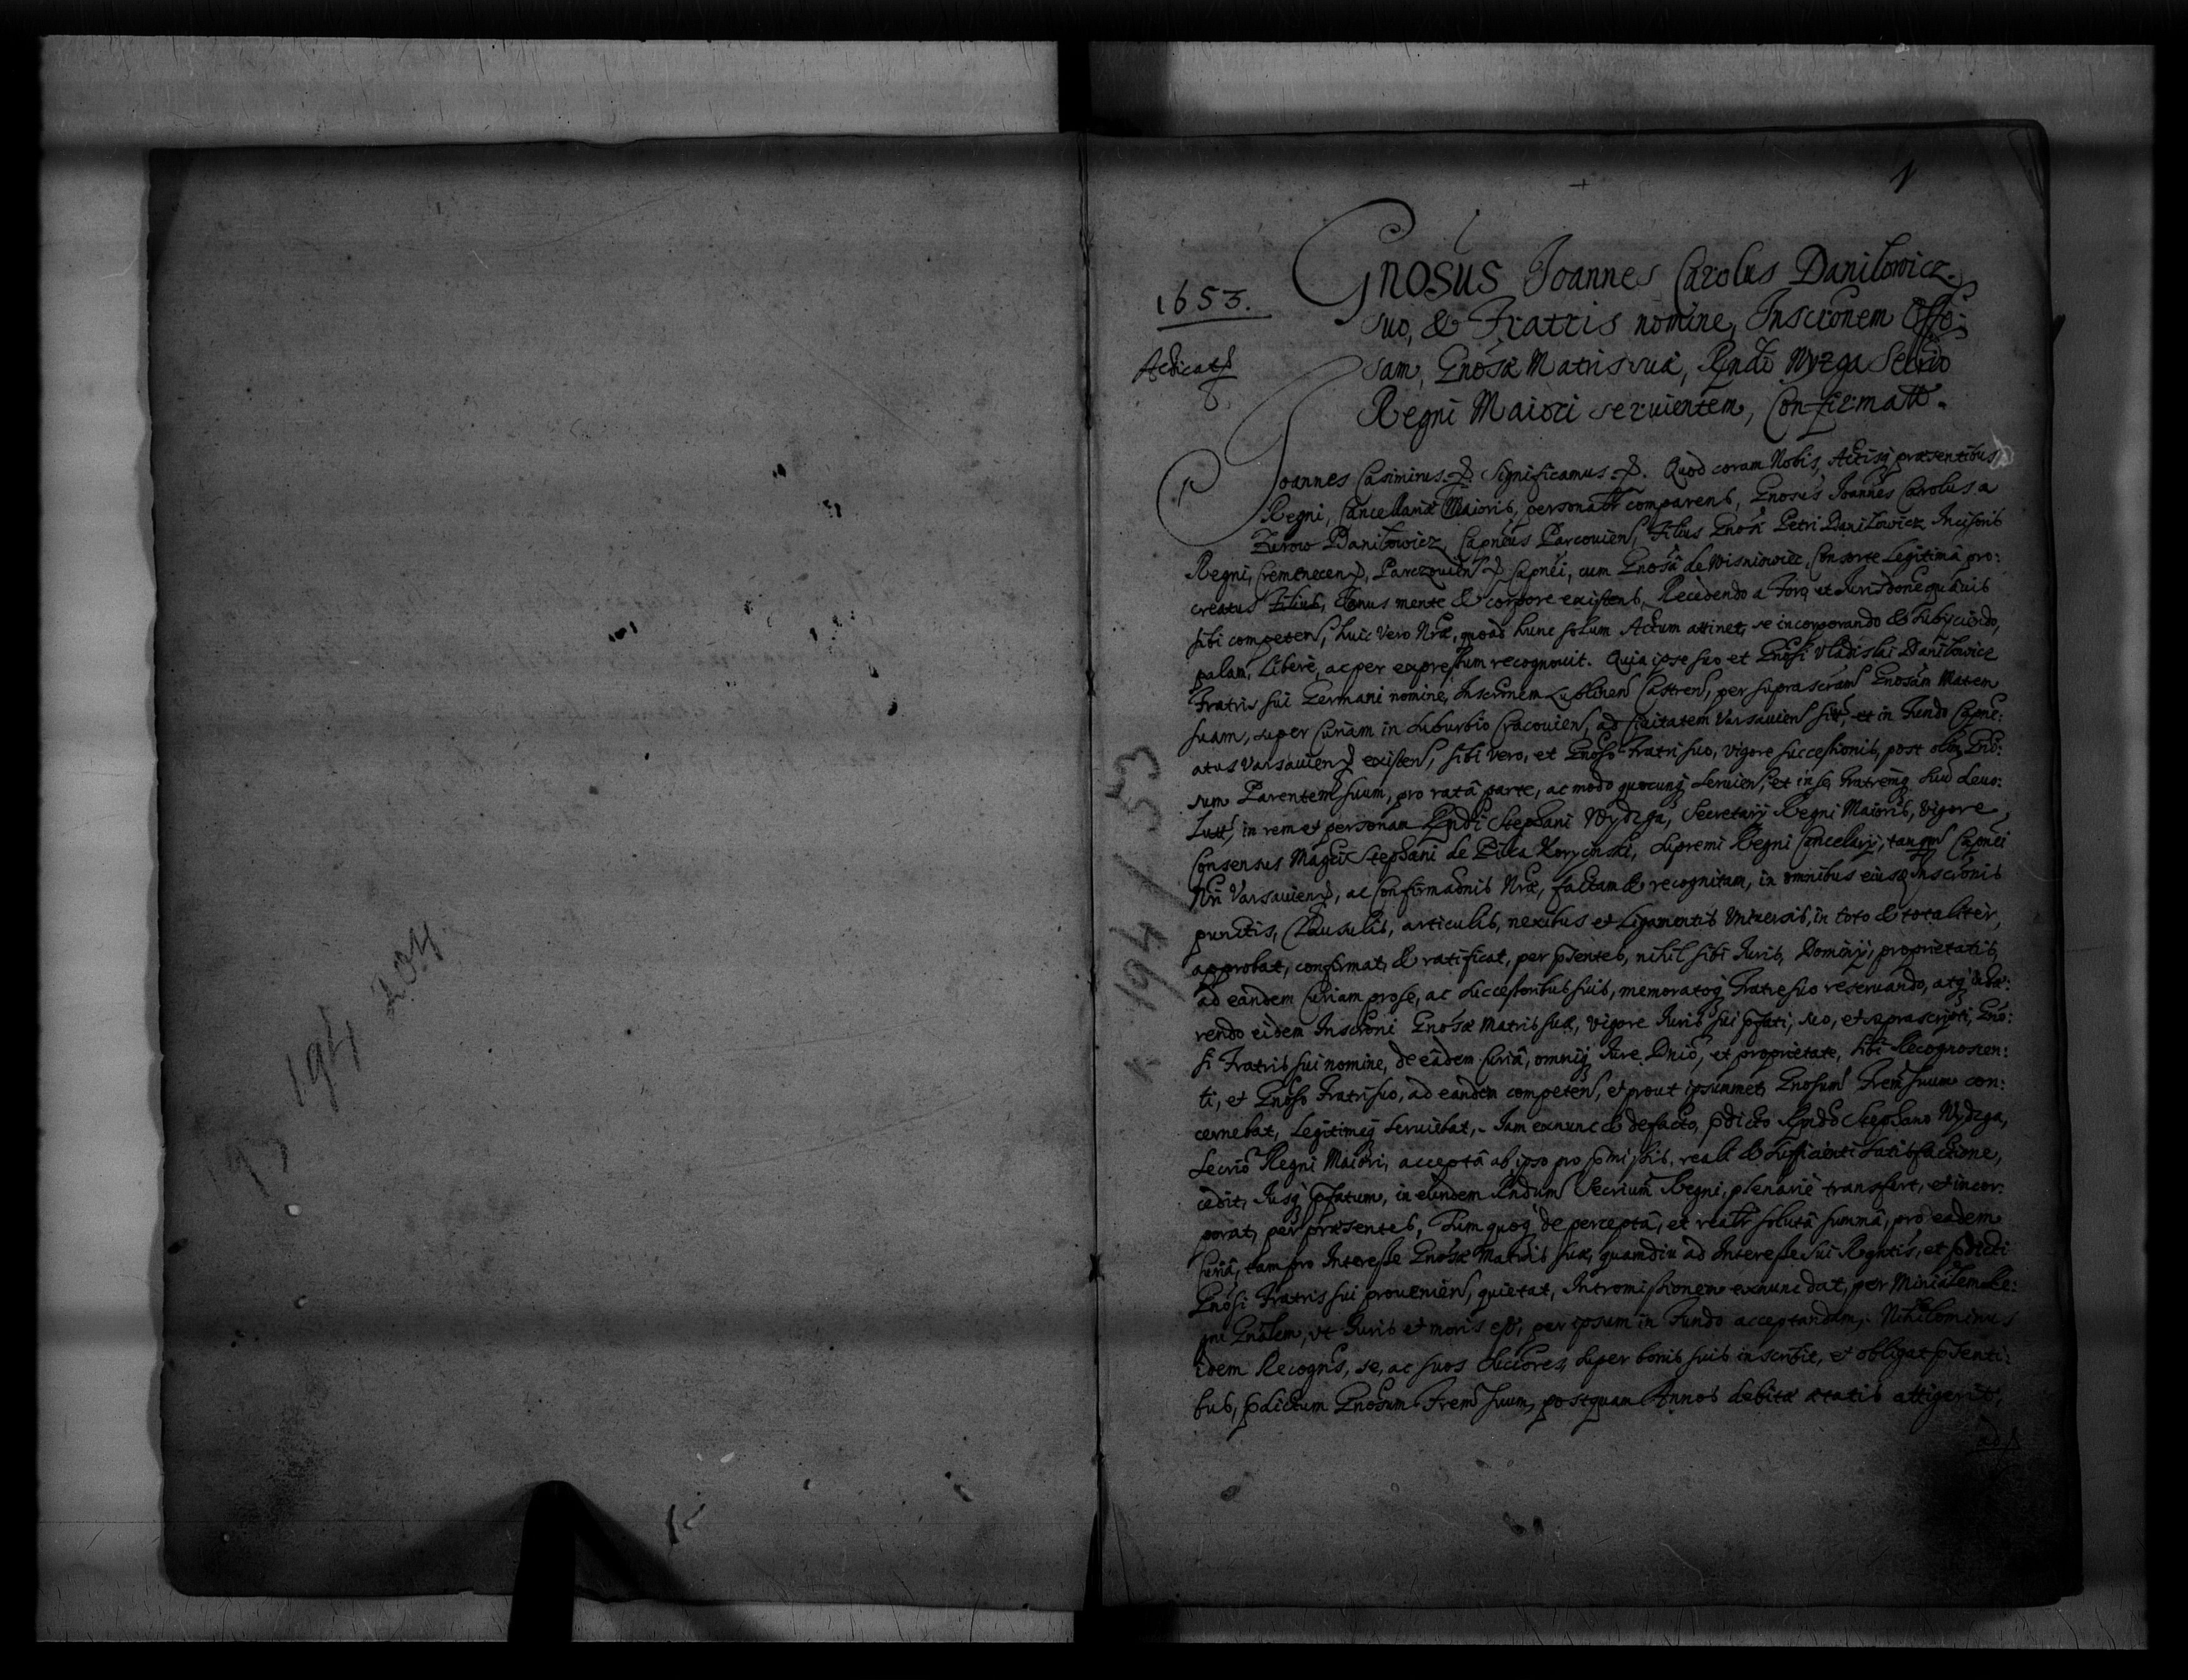 204
194
193
1
1653.
Gnosus Joannes Carolus Danilowicz
suo, & Fratris nomine, Inscrōnem
sam, Gnosæ Matris suæ, Rndi Wyzga
Regni Maiori servientem, Confirmatt.
Joannes Casimirus. Significamus. Quod coram Nobis, Actisq præsentibus
Regni, Cancellariæ Maioris, personalr comparens, Gnosus Joannes Carolus a
Zurow Danilowicz, Capneus Parcovien, Filius Gnosi Petri Danilowicz Incisoris
Regni, Cremenecen, Parczovien Capnei, cum Gnosâ de Wisniowiec, Consorte Legitimâ pro:
creatus Filius, Sanus mente & corpore existens, Recedendo a Foro, et Jurisdōne quâvis
sibi competen, huic vero Nræ, quoad hunc solum Actum attinet, se incorporando & subijciendo,
palam, liberè, ac per expressum recognovit. Quia ipse suo et Gnosi Vladislai Danilowicz
Fratris sui Germani nomine, Inscrōnem Lublinen Castren, per suprascram Gnosam Matrem
suam, super Curiam in suburbio Cracovien, ad Civitatem Varsavien sitt, et in Fundo Capne:
atus Varsavien existen, sibi vero, et Gnoso Fratri suo, vigore successionis, post olim Gno:
sum Parentem suum, pro ratâ parte, ac modo quocunq servien, et in se, Fratremq suū devo:
lutt, in rem et personam Rndi Stephani Wydzga, Secretarij Regni Maioris, vigore
Consensus Magci Stephani de Pilca Koryciński, supremi Regni Cancellarij, tanqm Capnei
Nri Varsavien, ac Confirmaōnis Nræ, factam & recognitam, in omnibus eiusq Inscrōnis
punctis, Clausulis, articulis, nexibus et Ligamentis Universis, in toto & totaliter,
approbat, confirmat, & ratificat, per pntes, nihil sibi Juris, Dominij, proprietatis,
ad eandem Curiam pro se, ac successoribus suis, memoratoq Fratre suo reservando, atq adæ:
rendo eidem Inscrōni Gnosæ Matris suæ, vigore Juris sui pfati, suo, et suprascripti, Gno:
si Fratris sui nomine, de eâdem Curiâ, omniq Jure Dnio, et proprietate, sibi Recognoscen:
ti, et Gnoso Fratri suo, ad eandem competen, et prout ipsummet Gnosum Frem suum con:
cernebat, Legitimeq serviebat, Iam exnunc & defacto, pdicto Rndo Stephano Wydzga,
Secrio Regni Maiori, acceptâ ab ipso pro pmissis, reali & sufficienti satisfactione,
cedit, Jusq pfatum, in eundem Rndum Secrium Regni, plenariè transfert, et incor:
porat, per præsentes, Tum quoq de perceptâ, et realr solutâ summâ, pro eadem
Curiâ, tam pro Interesse Gnosæ Matris suæ, quamdiu ad Interesse sui Rgntis, et pdicti
Gnosi Fratris sui provenien, quietat, Intromissionem exnunc dat, per Minialem Re:
gni Gnalem, ut Juris et moris est, per ipsum in Fundo acceptandam, Nihilominus
idem Recogns, se, ac suos succores, super bonis suis inscribit, et obligat pnti:
bus, pdictum Gnosum Frem suum, postquam Annos debitæ ætatis attigerit,
194/53